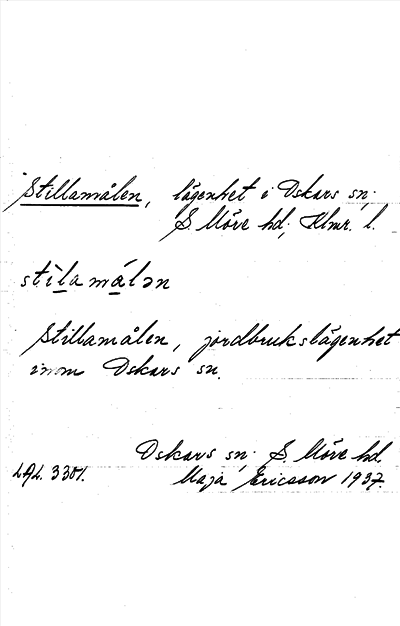 Stillamålen, lägenhet i Oskars sn;
S. Möre hd; Klmr. l.
stìlamálən
Stillamålen, jordbrukslägenhet
inom Oskars sn.
Oskars sn; S. Möre hd.
LAL. 3301. Maja Ericsson 1937.